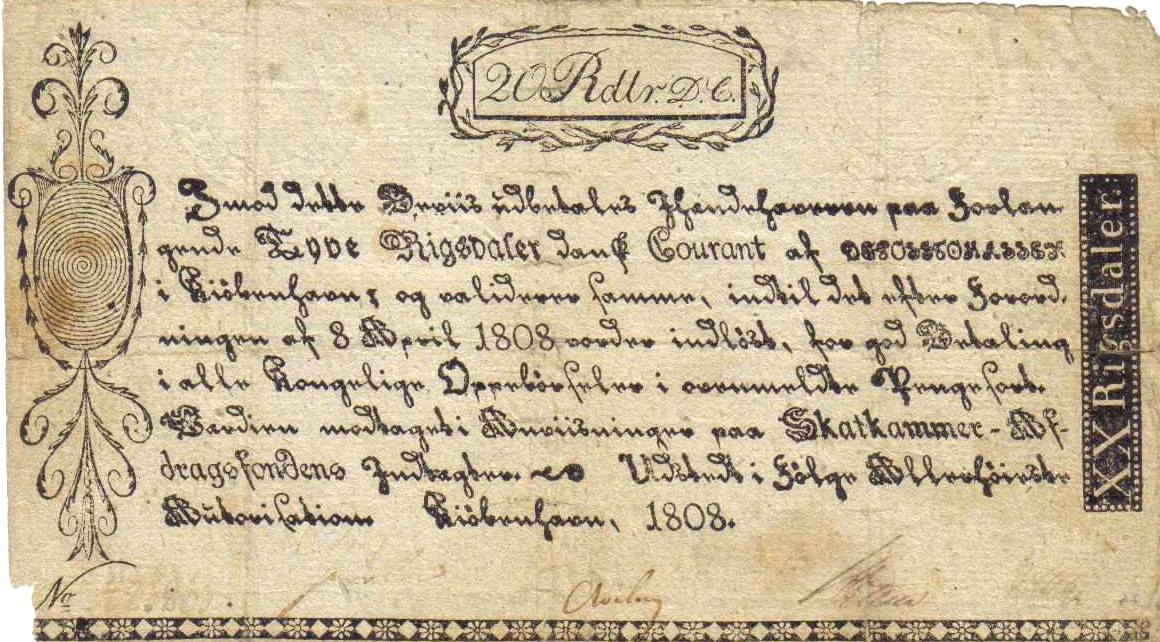 20 Rdlr. D. C.
Imod dette Beviis udbetales Ihændehaveren paa Forlan-
gende Tyve Rigsdaler dansk Courant af
i Kiöbenhavn; og validerer samme, indtil det efter Forord-
ningen af 8 April 1808 vorder indlöst, for god Betaling
i alle Kongelige Oppebörseler i ovenmeldte Pengesort.
Værdien modtaget i Anviisninger paa Skatkammer-Af-
dragsfondens Indtægter. Udstedt i Følge Allerhøieste
Autorisation. Kiöbenhavn, 1808.
XX Rigsdaler.
No